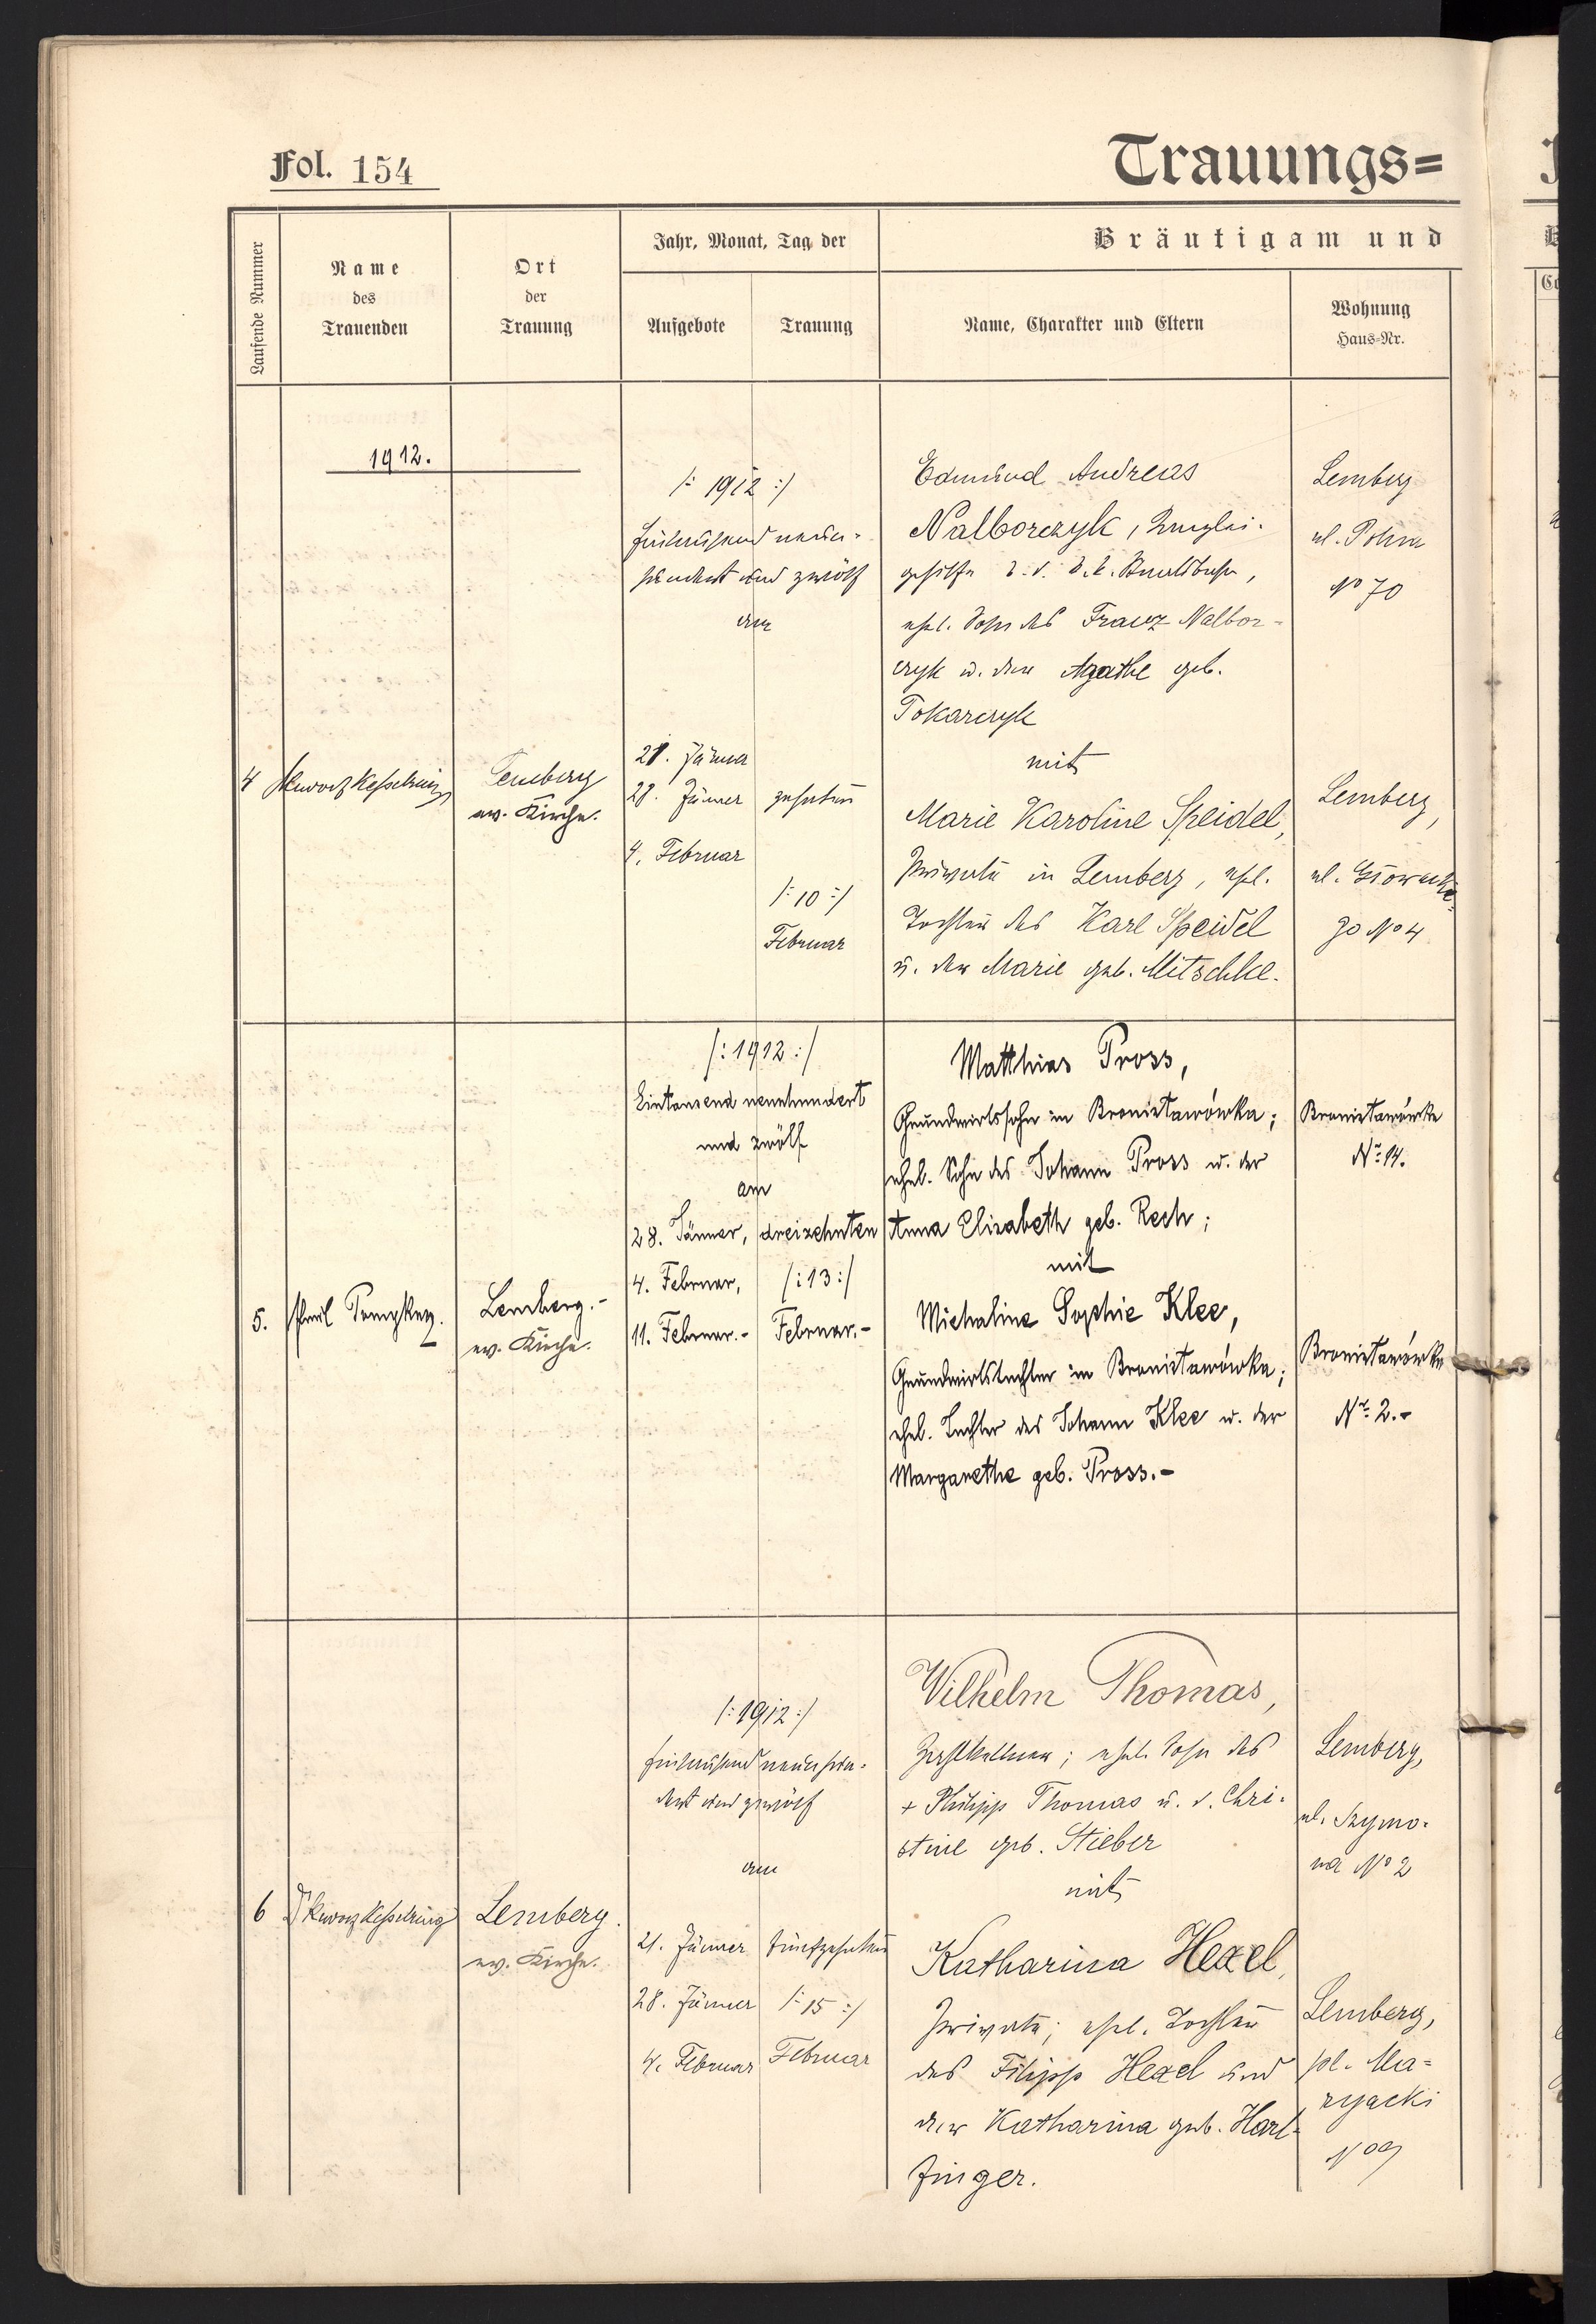 Fol. 154
Trauungs=
Laufende Nummer
Name
des
Trauenden
Ort
der
Trauung
Jahr, Monat, Tag der
Aufgebote
Trauung
Bräutigam und
Name, Charakter und Eltern
Wohnung
Haus-Nr.
1912.
4
Kesselring
Lemberg
ev. Kirche.
/: 1912 :/
Eintausend neun-
hundert und zwölf
am
21. Jänner
28. Jänner
4. Februar
zehnten
/: 10 :/
Februar
Edmund Andreas
Nalborczyk, Kanzlei-
gehilfe d. k.k. Staatsbahn,
ehel. Sohn des Franz Nalbor-
czyk u. der Agathe geb.
Tokarczyk
mit
Marie Karoline Speidel,
Private in Lemberg, ehel.
Tochter des Karl Speidel
u. der Marie geb. Mitschke.
Lemberg
ul. Polna
No 70
Lemberg,
ul.
go No 4
5.
Lemberg.-
ev. Kirche.
/: 1912 :/
Eintausend neunhundert
und zwölf
am
28. Jänner,
4. Februar,
11. Februar.-
dreizehnten
/: 13 :/
Februar.-
Matthias Pross,
Grundwirtssohn in Bronisławówka;
ehel. Sohn des Johann Pross u. der
Anna Elisabeth geb. Rech;
mit
Michaline Sophie Klee,
Grundwirtstochter in Bronisławówka;
ehel. Tochter des Johann Klee u. der
Margarethe geb. Pross.-
Bronisławówka
Nr. 14.
Bronisławówka
Nr. 2.-
6
Kesselring
Lemberg.
ev. Kirche.
/: 1912 :/
Eintausend neunhun-
dert und zwölf
am
21. Jänner
28. Jänner
4. Februar
fünfzehnten
/: 15 :/
Februar
Wilhelm Thomas,
Zahlkellner; ehel. Sohn des
+ Philipp Thomas u. d. Chri-
stine geb. Stieber
mit
Katharina Hexel,
Private; ehel. Tochter
des Filipp Hexel und
der Katharina geb. Harl-
finger.
Lemberg,
ul. Szymo-
na No 2
Lemberg,
pl. Ma-
ryacki
No 9